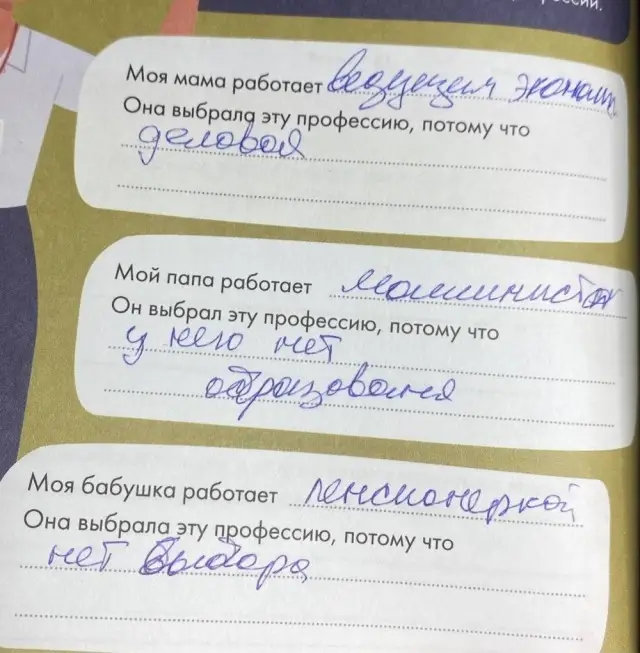 Моя мама работает ведущем эконом.
Она выбрала эту профессию, потому что
деловая
Мой папа работает машинистом
Он выбрал эту профессию, потому что
у него нет
образования
Моя бабушка работает пенсионеркой
Она выбрала эту профессию, потому что
нет выбора